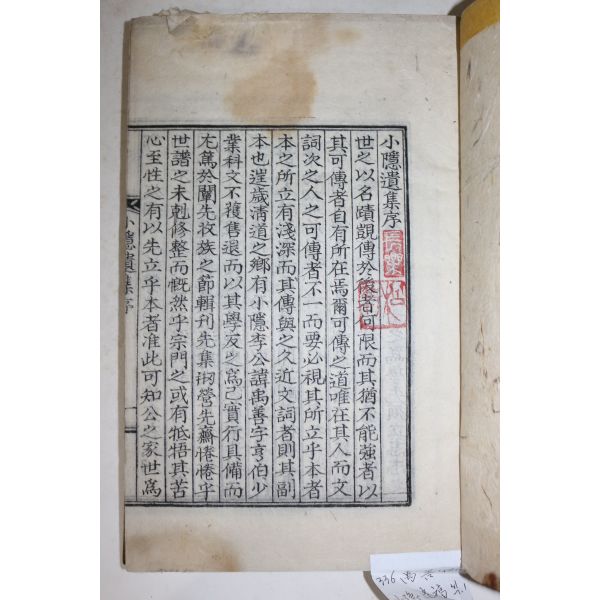 小隱遺集序
世之以名蹟覬傳於後者何限而其猶不能強者以
其可傳者自有所在焉爾可傳之道唯在其人而文
詞次之人之可傳者不一而要必視其所立乎本者
本之所立有淺深而其傳與之久近文詞者則其副
本也逞歲淸道之鄕有小隱李公諱禹善字亨伯少
業科文不獲售退而以其學友之爲己實行具備而
尤篤於闡先牧族之節輯刊先集溯營先齋惓惓乎
世譜之未剋修整而慨然乎宗門之或有牴牾其苦
心至性之有以先立乎本者准此可知公之家世爲
小隱遺集序
一
336